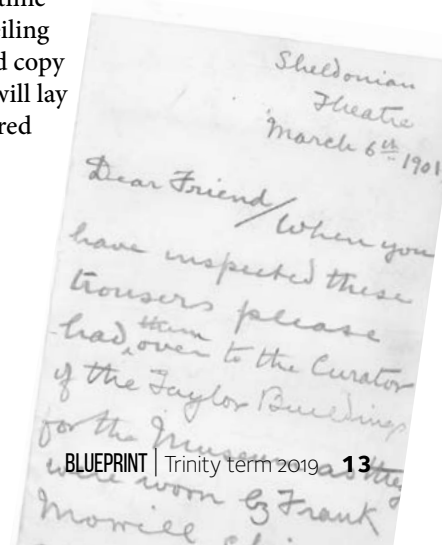 time
eiling
d copy
will lay
red
Sheldonian
Theatre
March 6th 1901
Dear Friend/When you
have inspected these
trousers please
had over to the Curator
them
of the Taylor Buildings
for the Museum as they
were worn by Frank
BLUEPRINT | Trinity term 2019 13